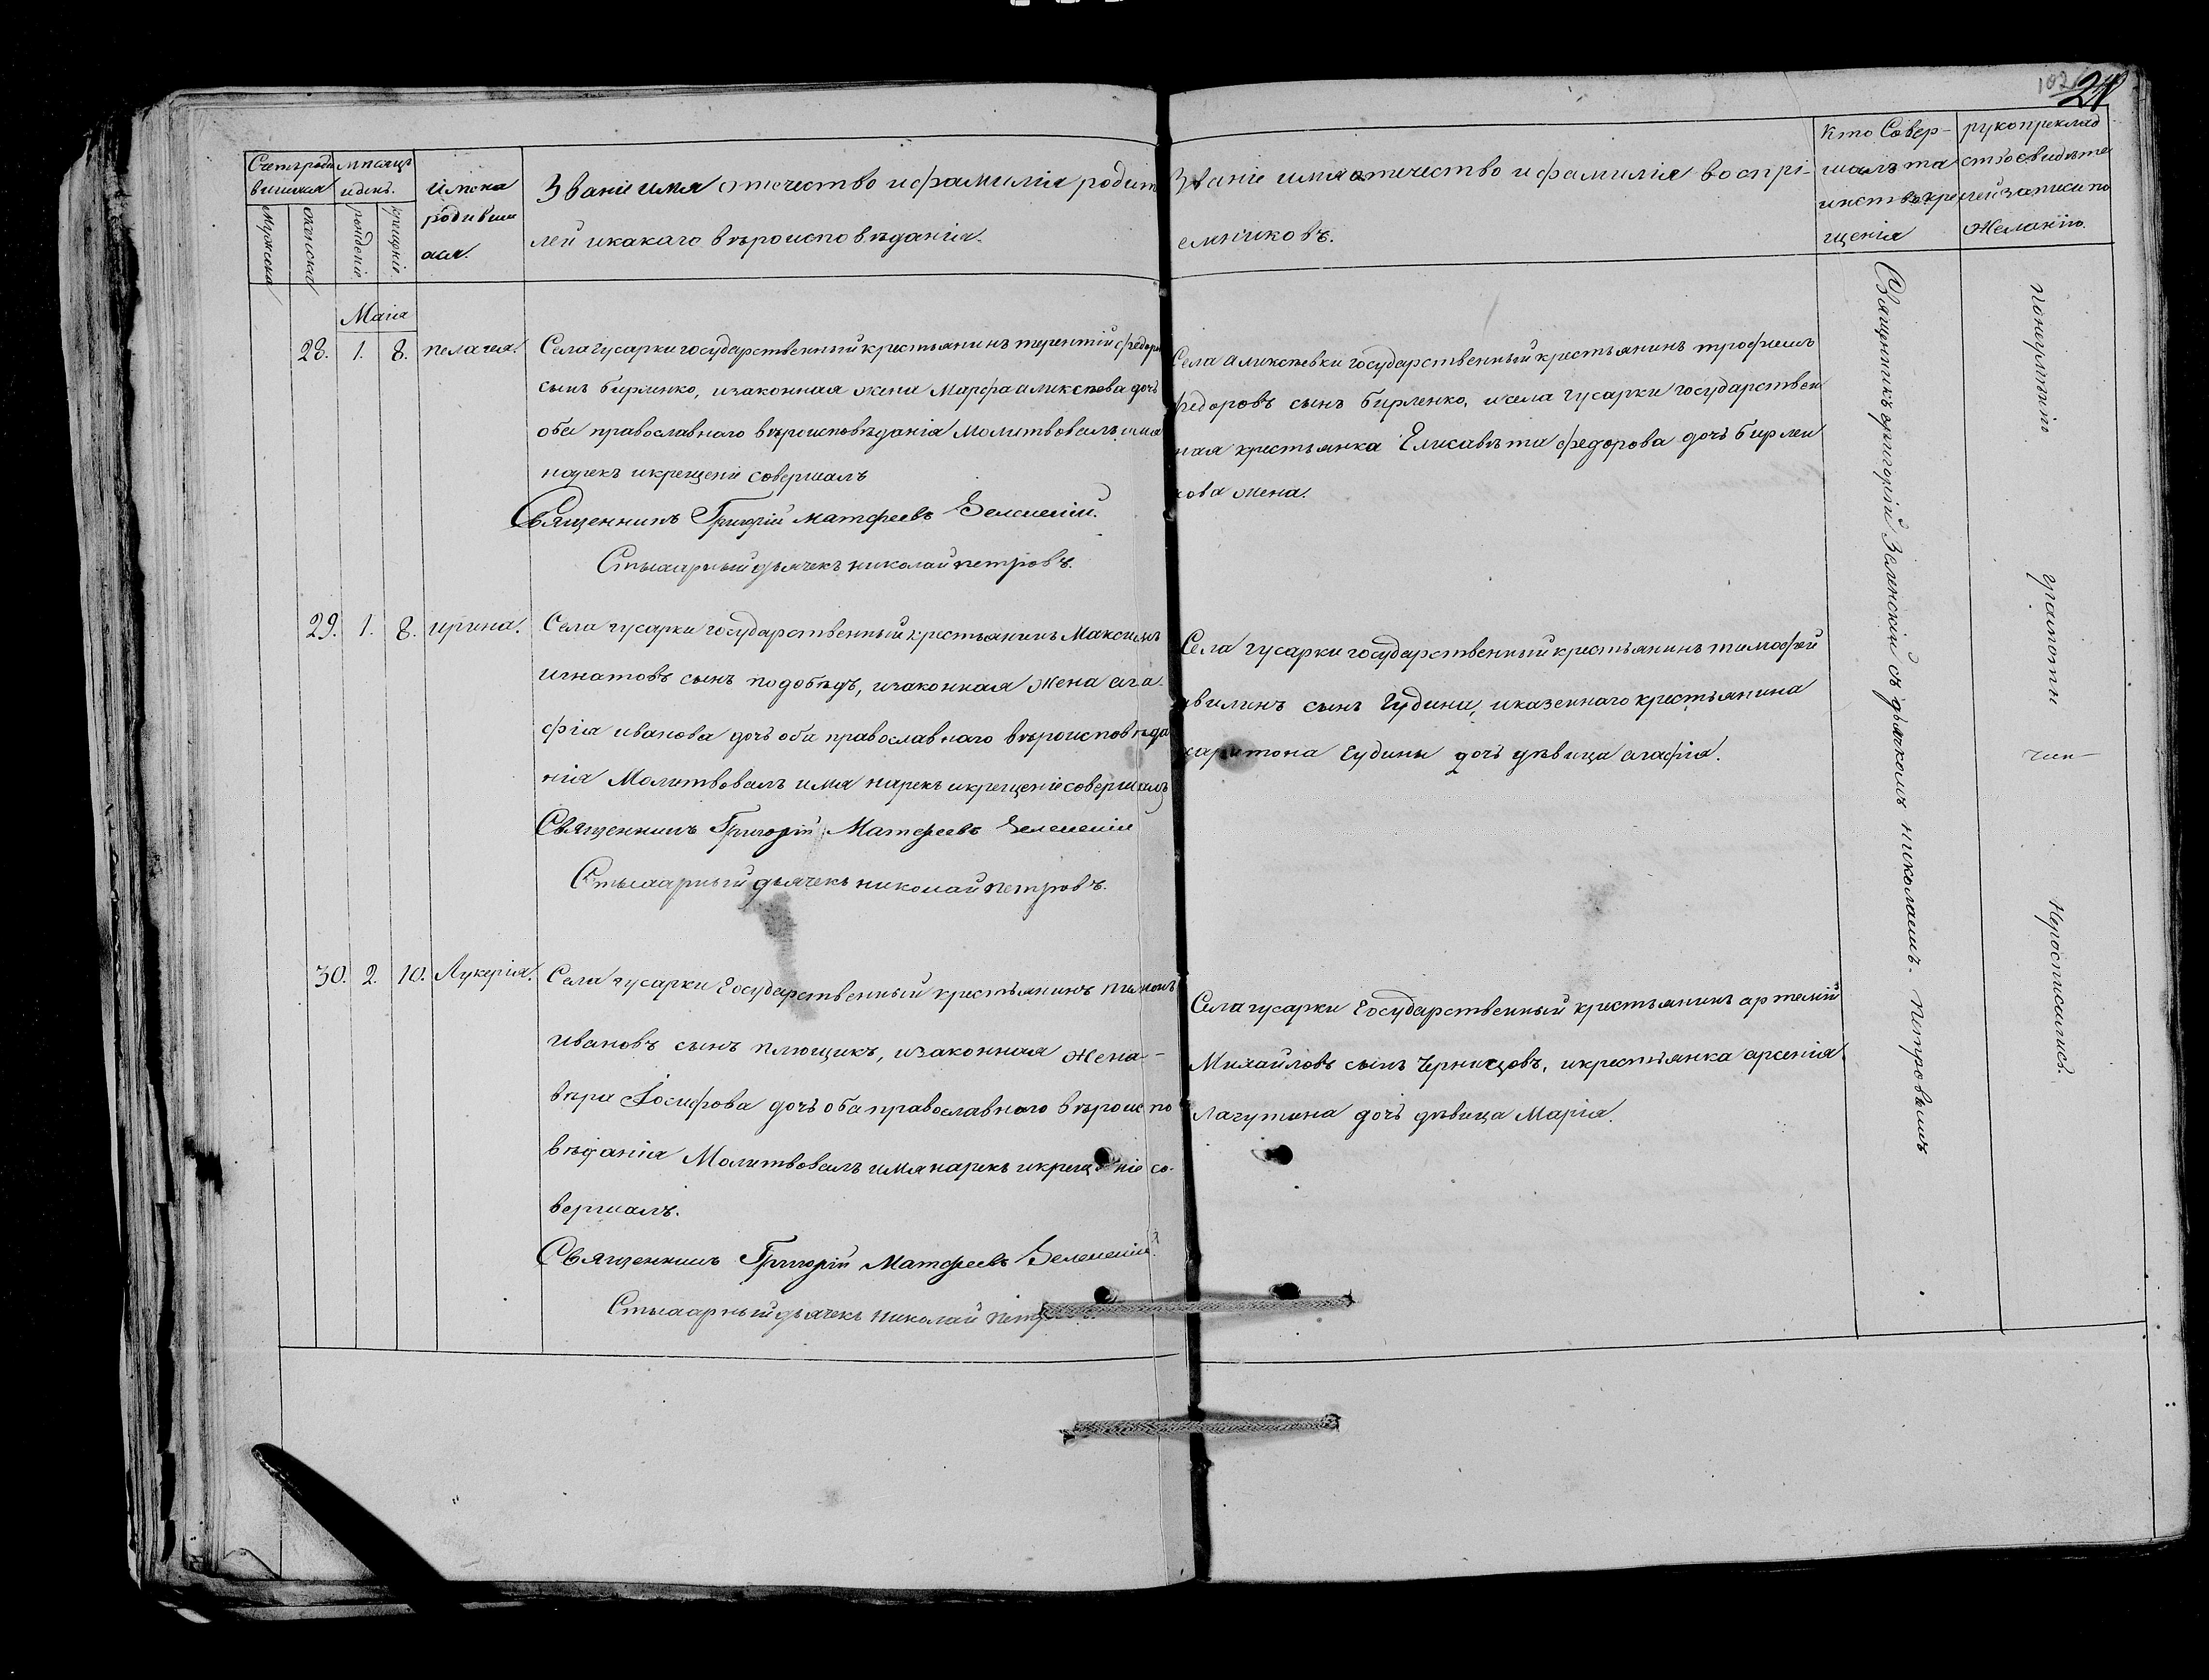 102
24
Счетъ роди
вшихся
Мужеска
Женска
месяцъ
и день.
рожденіе.
крещеніе.
имена
родивши
хся.
Званіе имя отечество и фамилія родите
лей и какаго вѣроисповѣданія.
Званіе имя отечество и фамилія воспрі-
емниковъ.
Кто Совер-
шалъ та
инство кре
щенія
рукоприклад
ство свидѣте
лей записи по
Желанію.
Маія
28. 1. 8. пелагея.
Села гусарки государственный крестьянинъ терентій федоро
сынъ бирленко, изаконная жена Марфа алексѣева дочь
оба православнаго вѣроисповѣданія Молитвовалъ, имя
нарекъ икрещеніе совершалъ
Священникъ Григорій Матфеевъ Зеленскій.
Стихарный дьячекъ николай петровъ.
Села алексѣевки государственный крестьянинъ трофимъ
федоровъ сынъ бирленко, исела гусарки государствен
ная крестьянка Елисавѣта федорова дочь бирлен
кова жена.
29. 1. 8. ирина.
Села гусарки государственный крестьянинъ Максимъ
игнатовъ сынъ подобѣдъ, изаконная Жена ага-
фія иванова дочь оба православнаго вѣроисповѣда
нія Молитвовалъ имя нарекъ икрещеніе совершалъ
Священникъ Григорій Матфеевъ Зеленскій
Стихарный дьячекъ николай петровъ.
Села гусарки государственный крестьянинъ тимофей
сынъ Гудина, иказеннаго крестьянина
харитона Гудины дочь дѣвица агафія.
30. 2. 10. Лукерія.
Села гусарки Государственный крестьянинъ пименъ
ивановъ сынъ плющикъ, изаконная Жена-
вѣра Іосифова дочь оба православнаго вѣроиспо
вѣданія Молитвовалъ имя нарекъ икрещеніе со-
вершалъ.
Священникъ Григорій Матфеевъ Зеленскій.
Стихарный дьячекъ николай петровъ.
Села гусарки Государственный крестьянинъ артемій
Михайловъ сынъ Чернецовъ, икрестьянка арсенія
Лагутина дочь дѣвица Марія.
Священникъ григорій Зеленскій съ дьячкомъ николаемъ. петровымъ
понеумѣнію
грамоты
нерасписались.